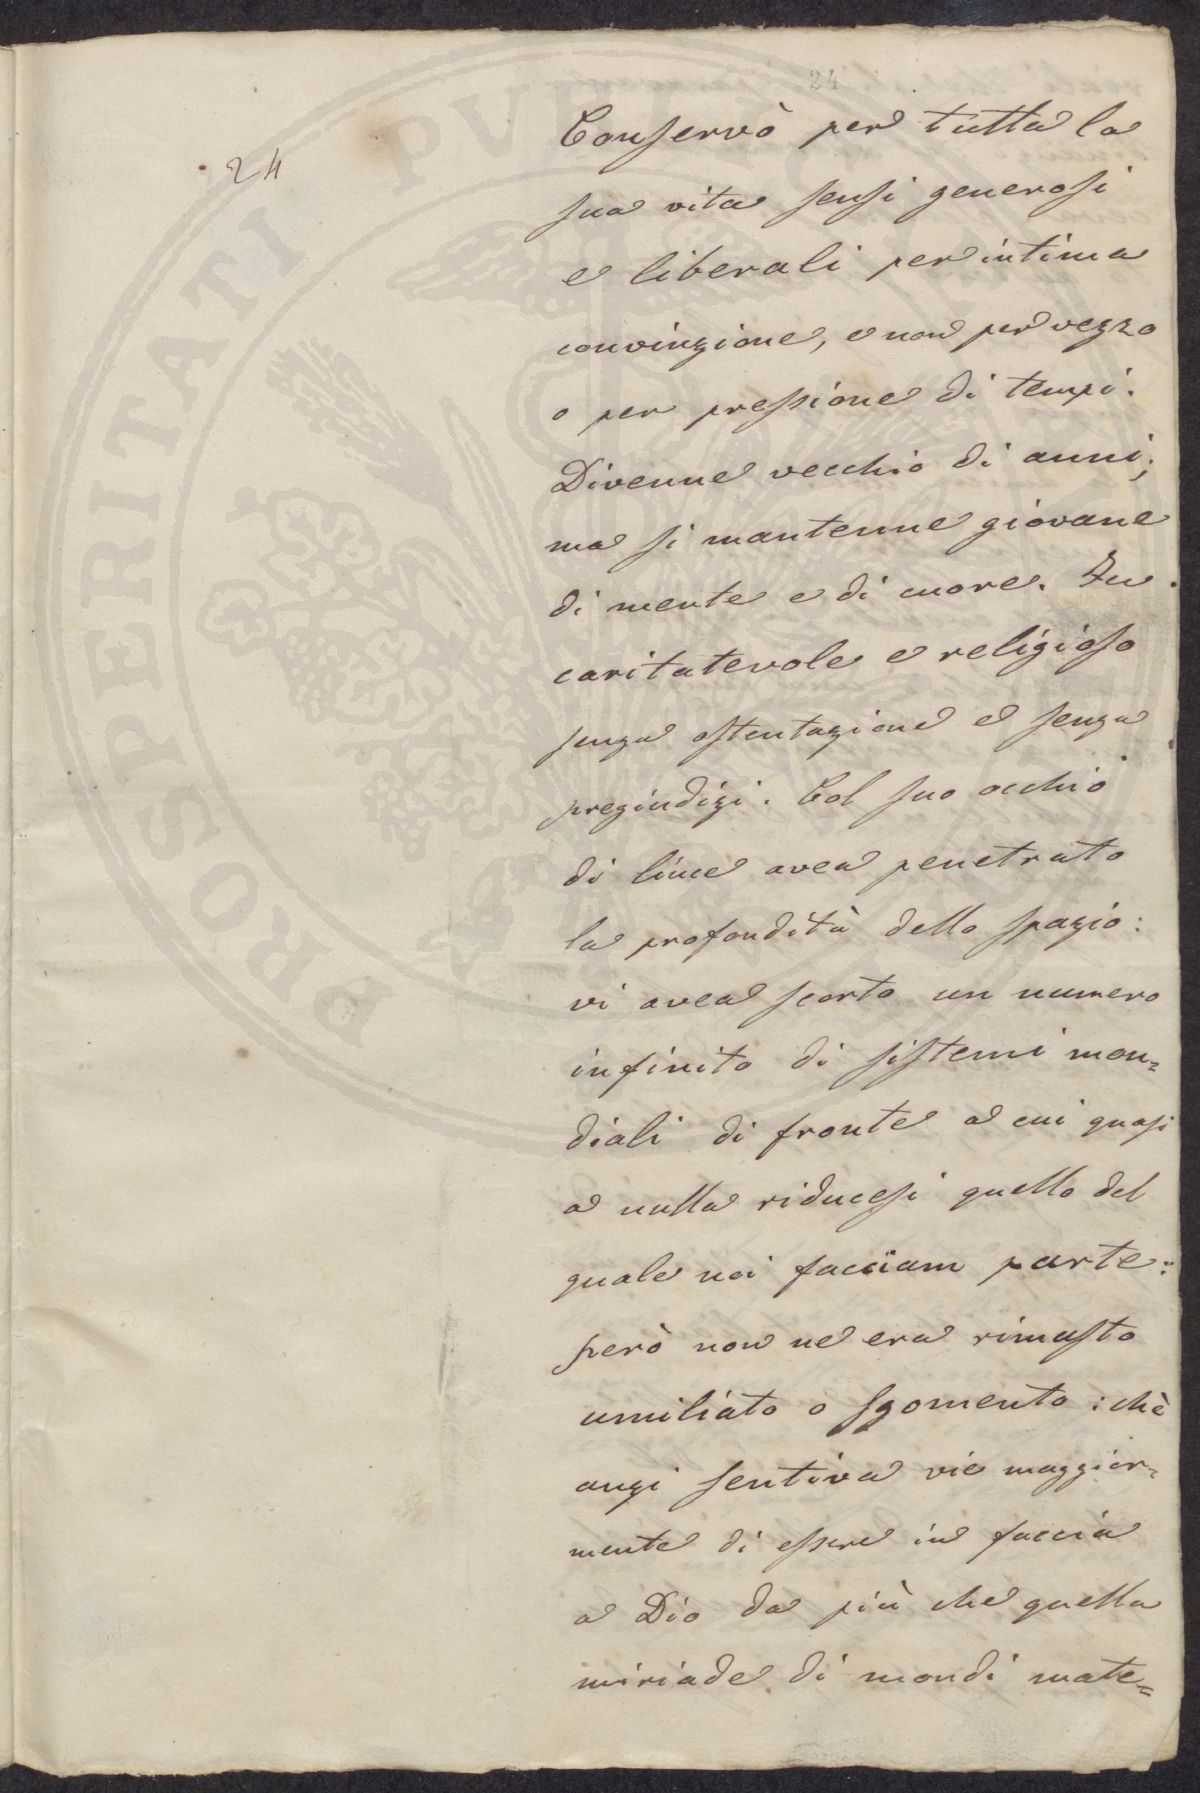 24
24
Conservò per tutta la
sua vita sensi generosi
e liberali per intima
convinzione, e non per vezzo
o per pressione di tempi.
Divenne vecchio di anni;
ma si mantenne giovane
di mente e di cuore. Fu
caritatevole e religioso
senza ostentazione e senza
pregiudizi. Col suo occhio
di lince avea penetrato
la profondità dello spazio:
vi avea scorto un numero
infinito di sistemi mon=
diali di fronte a cui quasi
a nulla riducesi quello del
quale noi facciam parte:
però non ne era rimasto
umiliato o sgomento: chè
anzi sentiva vie maggior=
mente di essere in faccia
a Dio da più che quella
miriade di mondi mate=
PROSPERITATI PVBLICAE